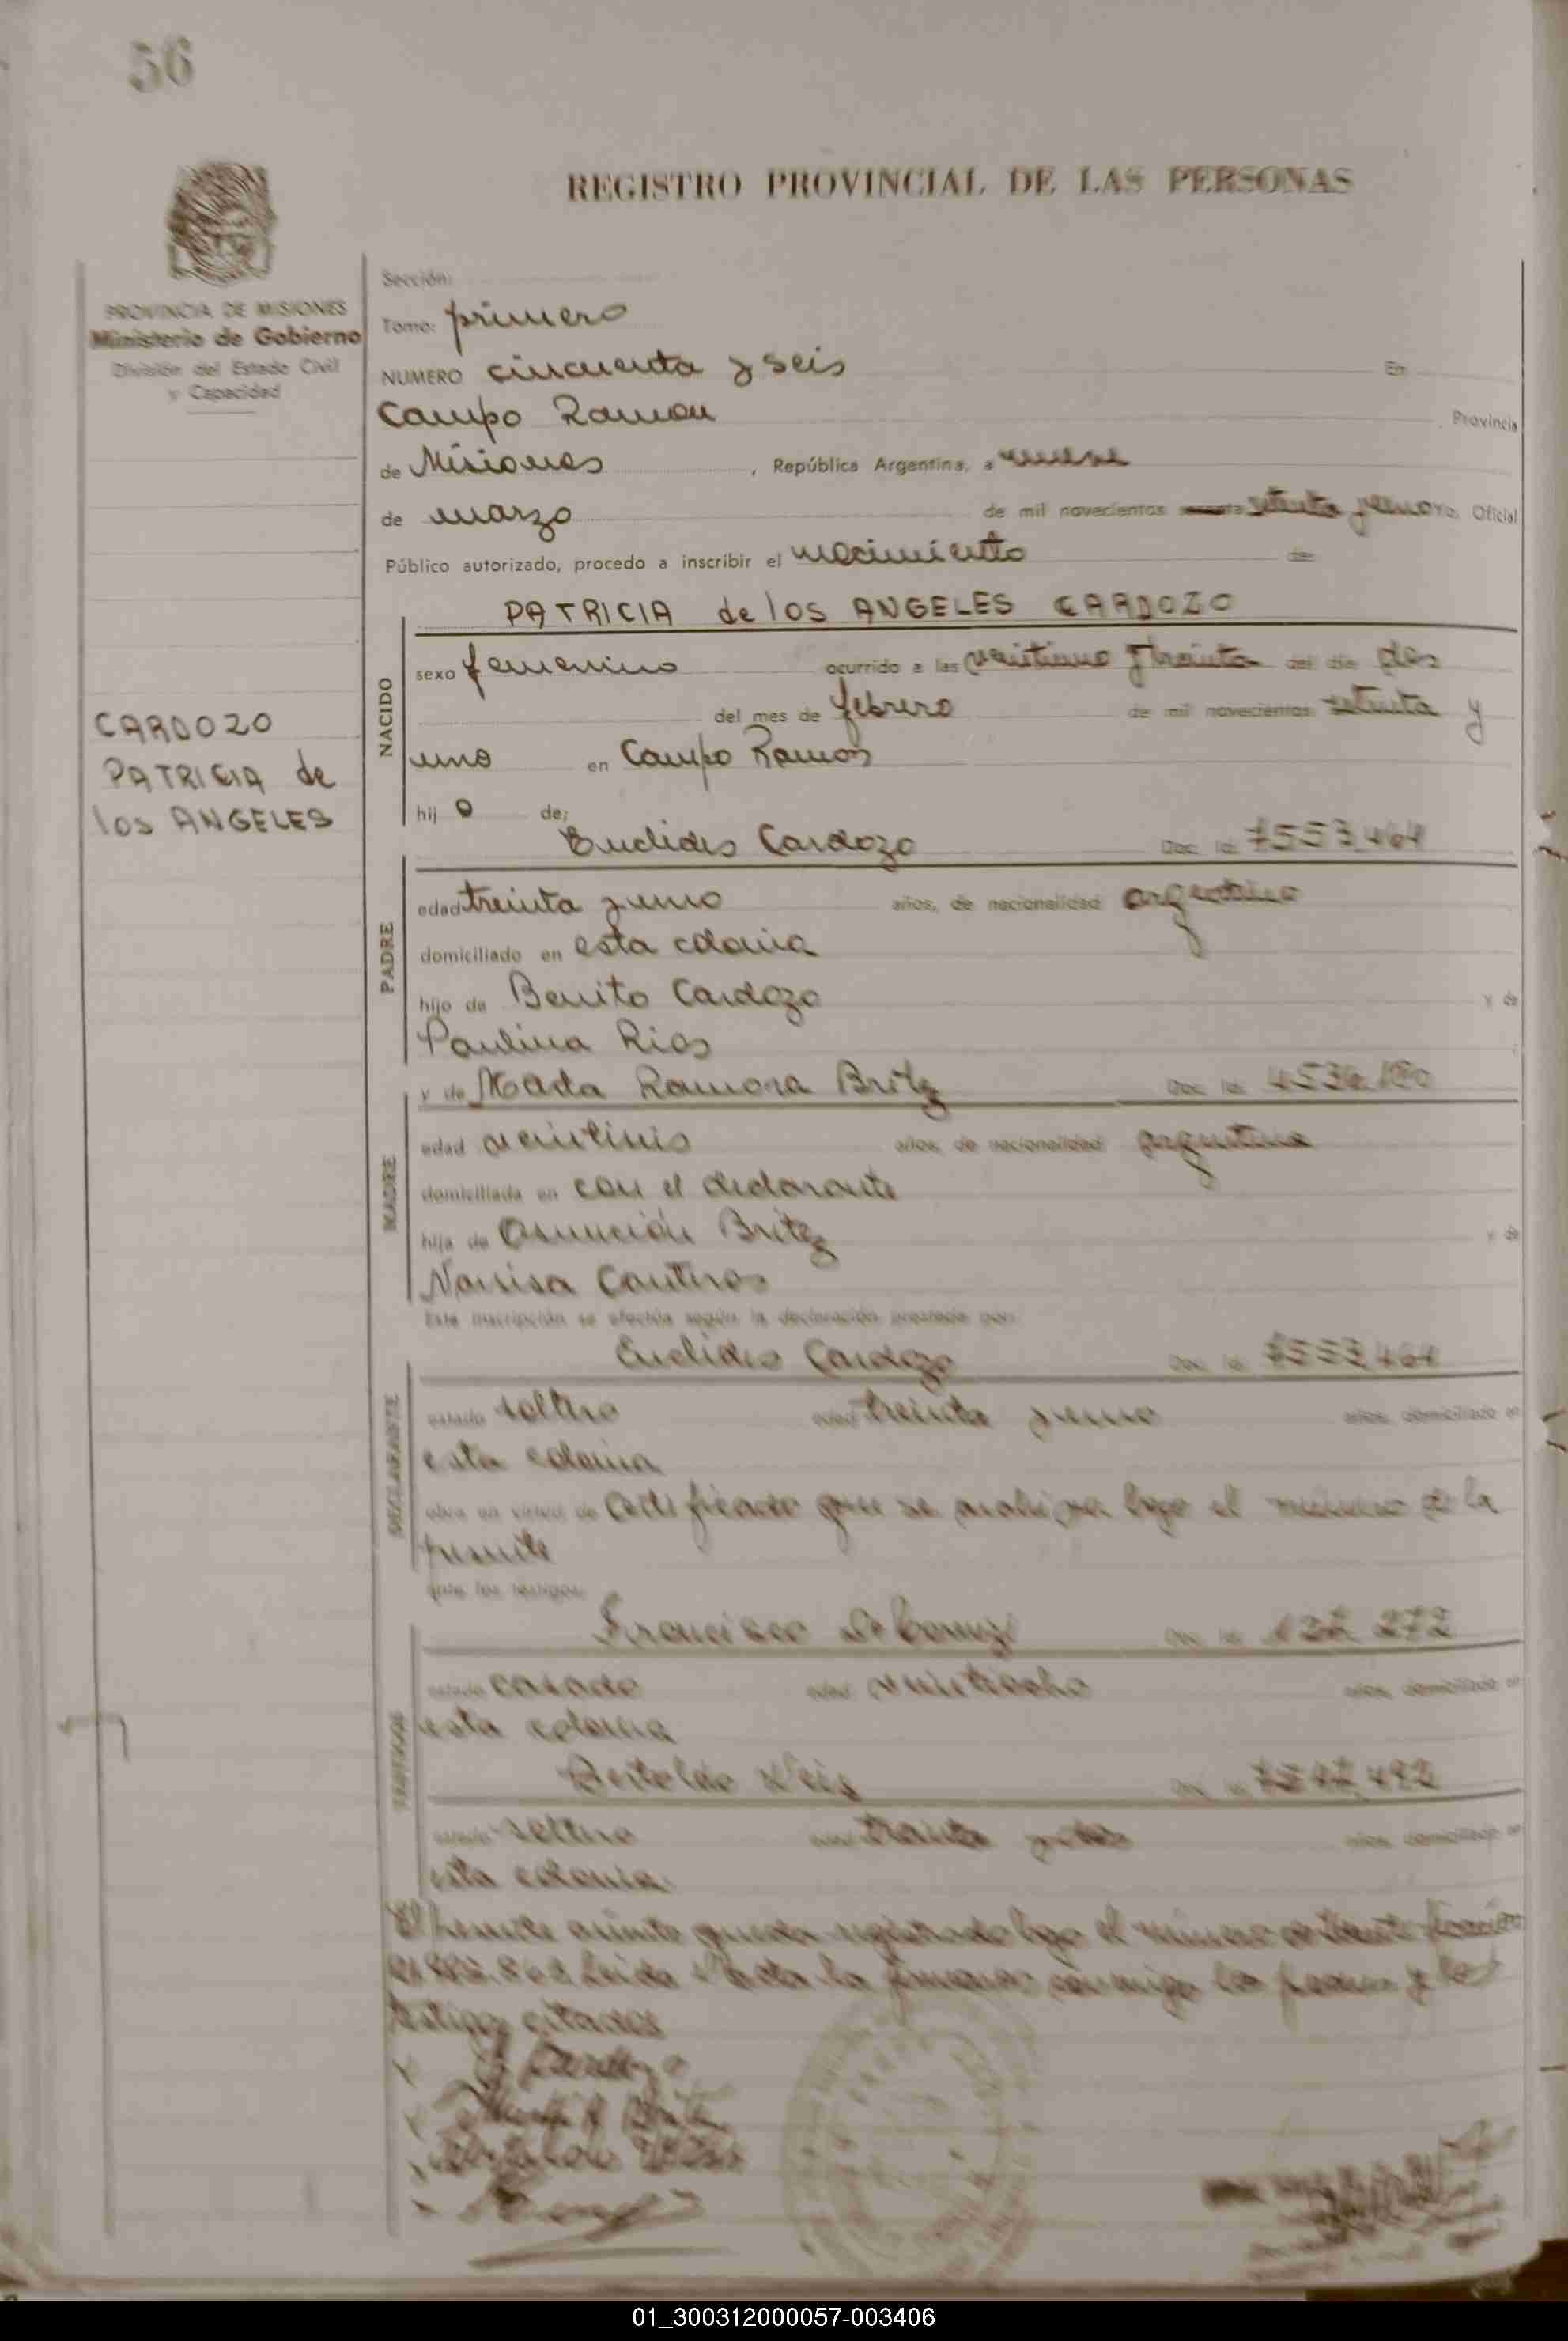 56
REGISTRO PROVINCIAL DE LAS PERSONAS
PROVINCIA DE MISIONES
Ministerio de Gobierno
División del Estado Civil
y Capacidad
Sección:
Tomo: primero
NUMERO cincuenta y seis En
Campo Ramon Provincia
de Misiones , República Argentina, a nueve
de marzo de mil novecientos setenta y uno Yo, Oficial
Público autorizado, procedo a inscribir el nacimiento de
PATRICIA de los ANGELES CARDOZO
CARDOZO
PATRICIA de
los ANGELES
NACIDO
sexo femenino ocurrido a las veintiuno y treinta del día dos
del mes de febrero de mil novecientos setenta y
uno en Campo Ramon
hij o de;
Euclides Cardozo Doc. Id. 7553.464
PADRE
edad treinta y uno años, de nacionalidad argentino
domiciliado en esta colonia
hijo de Benito Cardozo y de
Paulina Rios
y de Marta Ramona Britez Doc. Id.
MADRE
edad años, de nacionalidad argentina
domiciliada en con el declarante
hija de Asunción Britez y de
Narcisa Conteros
Esta inscripción se efectúa según la declaración prestada por:
Euclides Cardozo Doc. Id. 7553.464
DECLARANTE
estado soltero edad treinta y uno años, domiciliado en
esta colonia
obra en virtud de Certificado que se archiva bajo el número de la
presente
ante los testigos:
Francisco Doc. Id. 272
TESTIGOS
estado casado edad veintiocho años, domiciliado en
esta colonia
Bertoldo Doc. Id. 492
estado soltero edad treinta años, domiciliado en
esta colonia
El presente asiento queda registrado bajo el número
Leida el acta la firmaron conmigo los padres y los
testigos citados
01_300312000057-003406